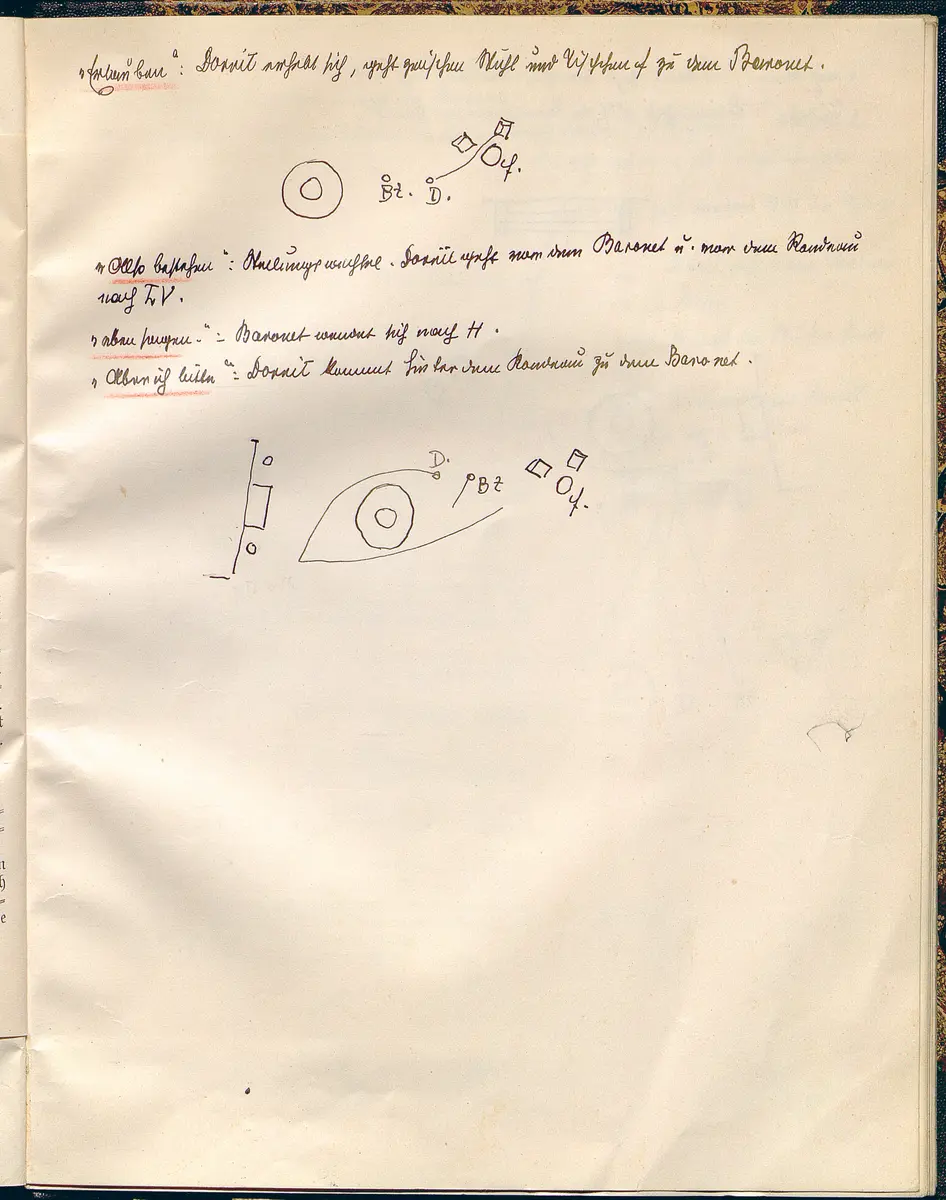 „Erlauben": Dorrit erhebt sich, geht zwischen Stuhl und Tischchen f zu dem Baronet.
f.
Bt. D.
„Also bestehen": Stellungswechsel. Dorrit geht vor dem Baronet u. vor dem Rondeau
nach IV.
„eben sagen.": Baronet wendet sich nach H.
„Aber ich bitte": Dorrit kommt hinter dem Rondeau zu dem Baronet.
D.
Bt
f.